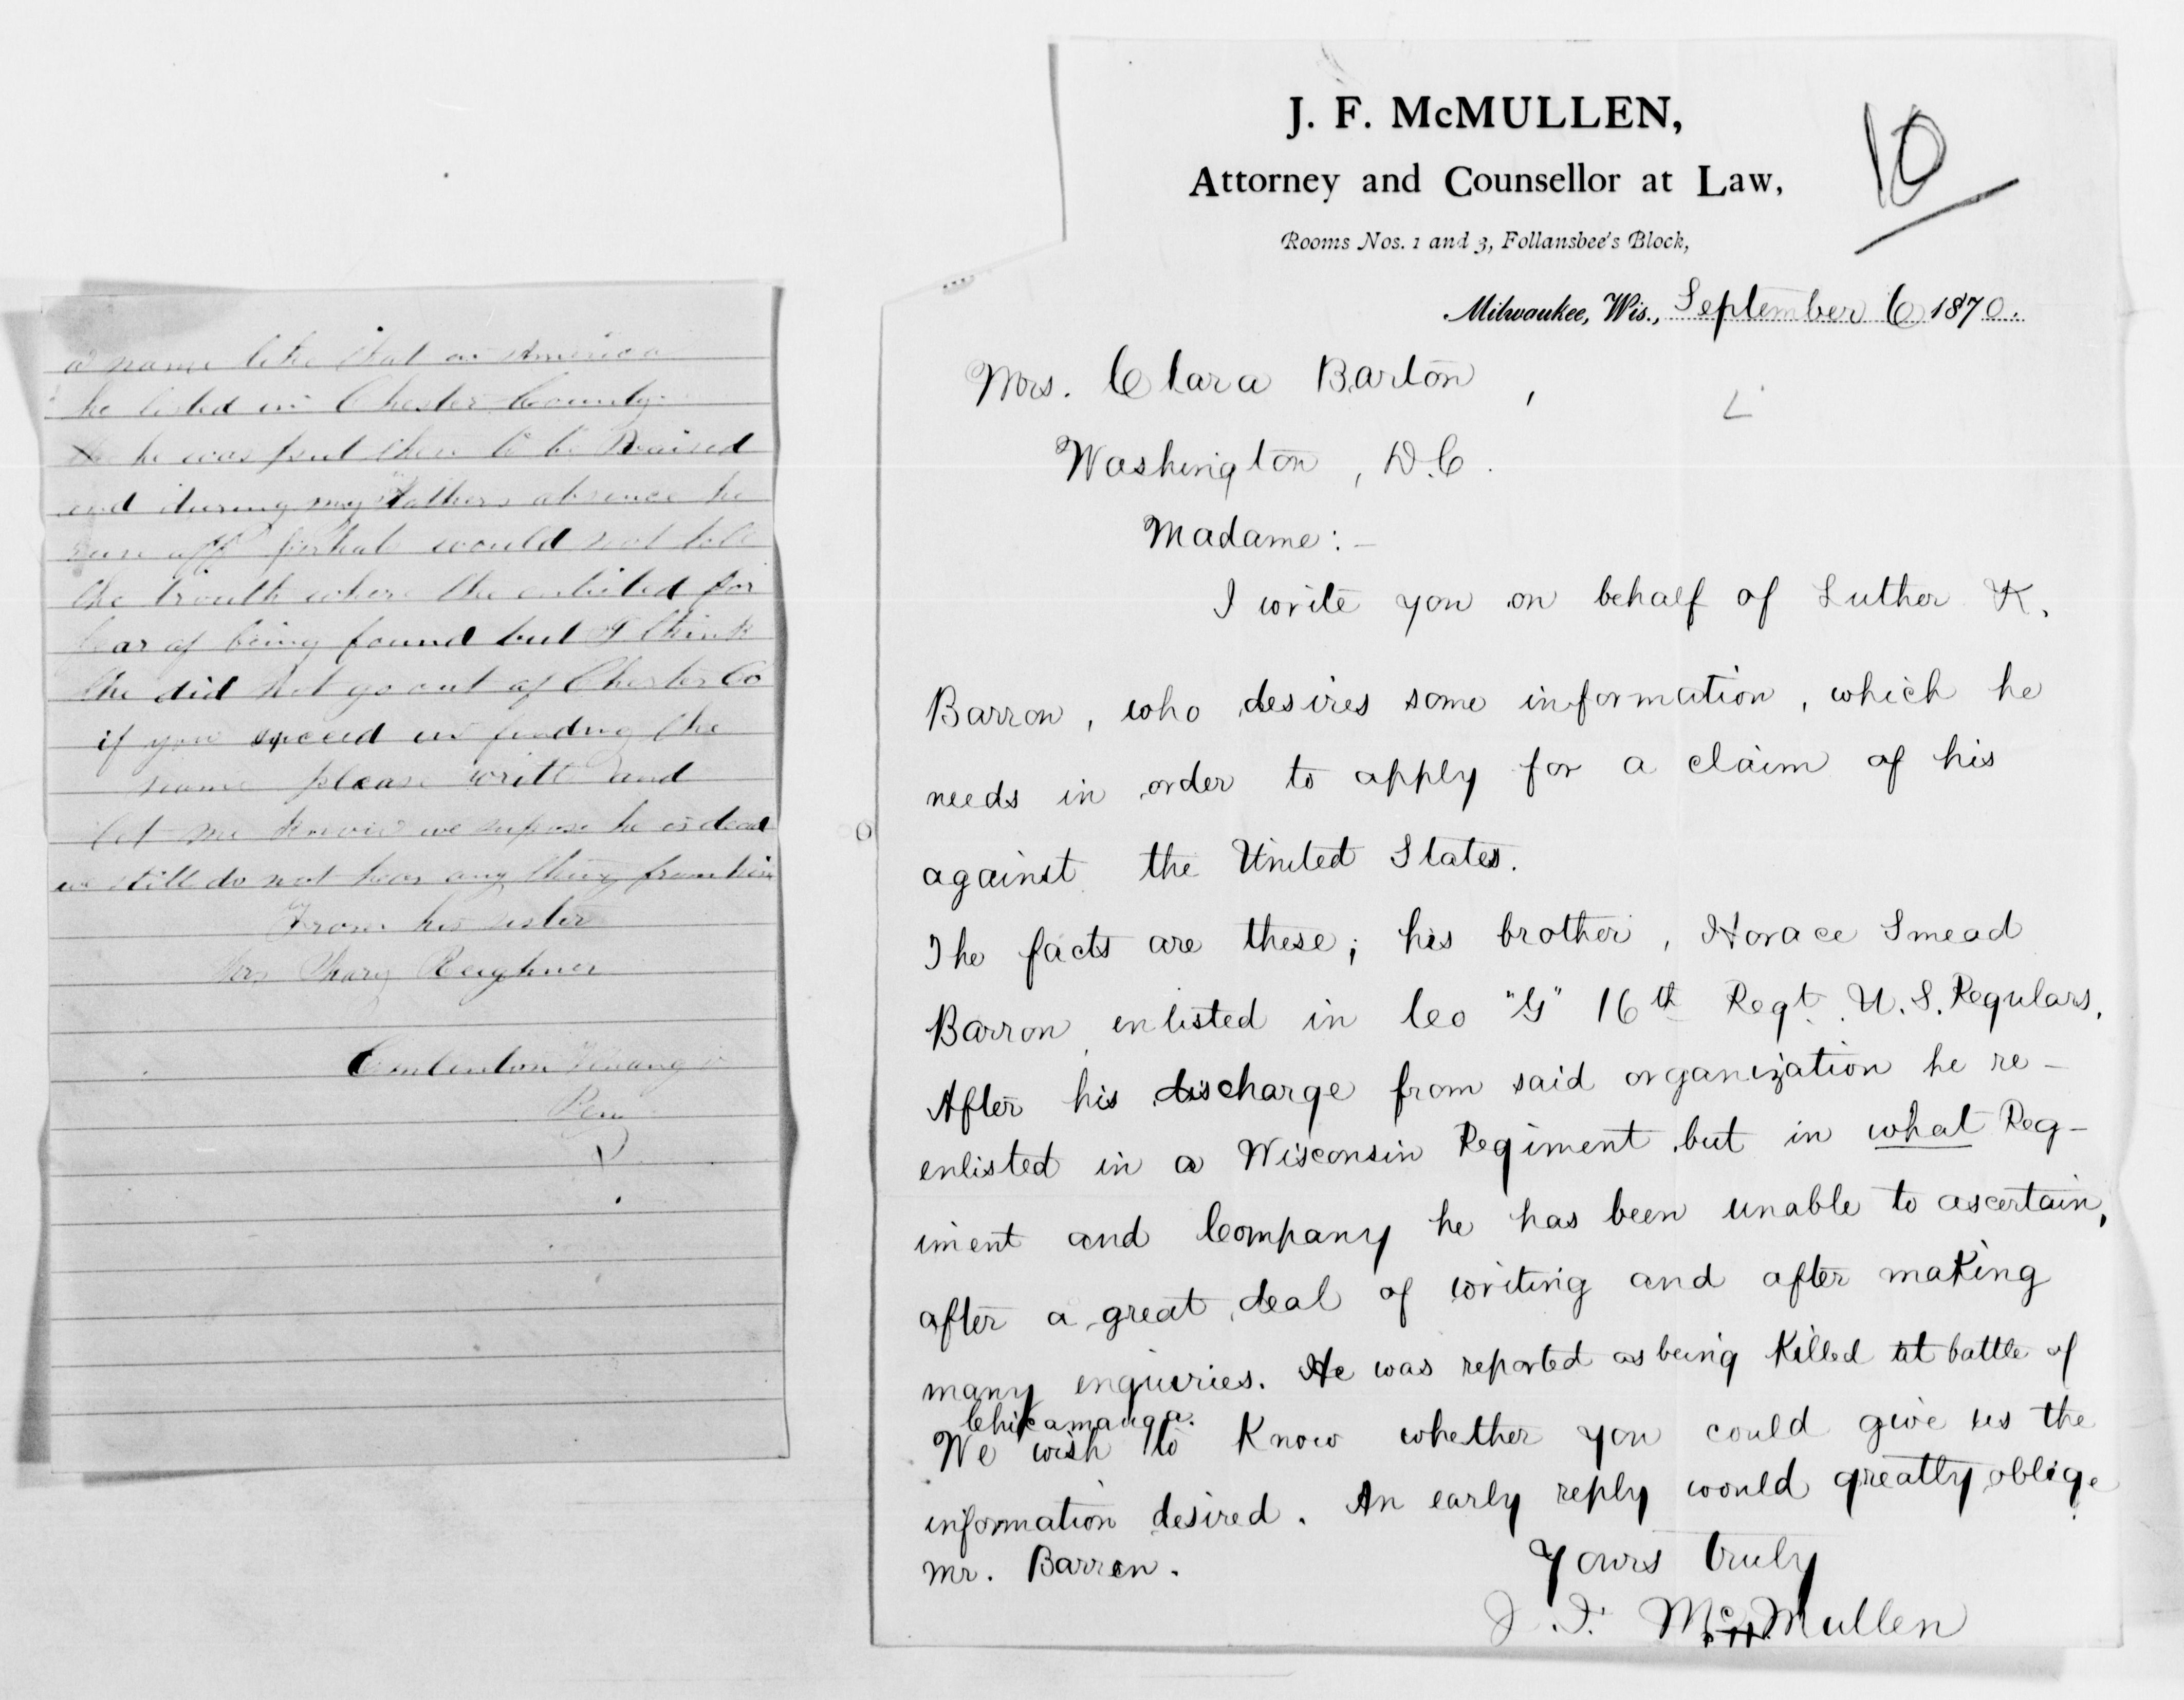 a name like that in America
he listed in Chester County
he was put there to be Raised
and during my Fathers absence he
run off perhab would not tell
the trouth where the enlisted for
fear of being found but I think
the did not go out of Chester Co
if you suceed in finding the
name please write and
let me know we supose he is dead
we still do not hear any thing from him
From his sister
Mrs Mary Reighner
Penn
J. F. McMULLEN,
Attorney and Counsellor at Law,
10
Rooms Nos. 1 and 3, Follansbee's Block,
Milwaukee, Wis., September 6 1870.
Mrs. Clara Barton,
Washington, D.C.
Madame:—
I write you on behalf of Luther K.
Barron, who desires some information, which he
needs in order to apply for a claim of his
against the United States.
The facts are these; his brother, Horace Smead
Barron enlisted in Co "G" 16th Regt. U.S. Regulars.
After his discharge from said organization he re-
enlisted in a Wisconsin Regiment but in what Reg-
iment and Company he has been unable to ascertain,
after a great deal of writing and after making
many enquiries. He was reported as being killed at battle of
Chickamauga.
We wish to know whether you could give us the
information desired. An early reply would greatly oblige
Mr. Barron.
Yours truly
J. F. McMullen